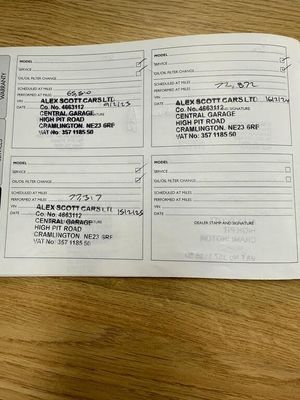 WARRANTY
MODEL
SERVICE
OIL/OIL FILTER CHANGE
SCHEDULED AT MILES
PERFORMED AT MILES 65,610
VIN
DATE 9/12/23
ALEX SCOTT CARS LTD
Co. No. 4663112
CENTRAL GARAGE
HIGH PIT ROAD
CRAMLINGTON. NE23 6RF
VAT No: 357 1185 50
MODEL
SERVICE
OIL/OIL FILTER CHANGE
SCHEDULED AT MILES
PERFORMED AT MILES 72,872
VIN
DATE 16/12/24
ALEX SCOTT CARS LTD
Co. No. 4663112
CENTRAL GARAGE
HIGH PIT ROAD
CRAMLINGTON. NE23 6RF
VAT No: 357 1185 50
MODEL
SERVICE
OIL/OIL FILTER CHANGE
SCHEDULED AT MILES
PERFORMED AT MILES 77,317
VIN
DATE 15/12/25
ALEX SCOTT CARS LTD
Co. No. 4663112
CENTRAL GARAGE
HIGH PIT ROAD
CRAMLINGTON. NE23 6RF
VAT No: 357 1185 50
MODEL
SERVICE
OIL/OIL FILTER CHANGE
SCHEDULED AT MILES
PERFORMED AT MILES
VIN
DATE
DEALER STAMP AND SIGNATURE